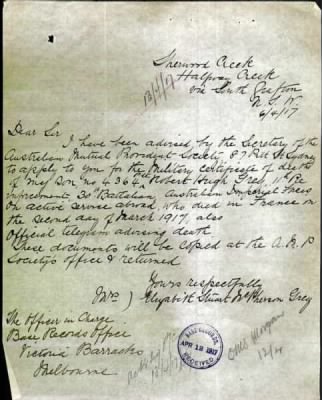 Sherwood Creek
Halfway Creek
via South Grafton
N.S.W.
6/4/17
13/4/17
Dear Sir
I have been advised by the Secretary of the
Australian Mutual Provident Society, 87 Pitt St Sydney
to apply to you for the Military certificate of death
of my Son No 4364, Robert Hugh Grey
Reinforcement, 30 Battalion Australian Imperial Forces
On active service abroad, who died in France on
the second day of March 1917, also
Official telegram advising death
These documents will be copied at the A.M.P
Society's office & returned
Yours respectfully
Mrs) Elizabeth Stuart McPherson Grey
The Officer in Charge
Base Records Office
Victoria Barracks
Melbourne
BASE RECORDS
APR 12 1917
RECEIVED
13/4/17
12/4